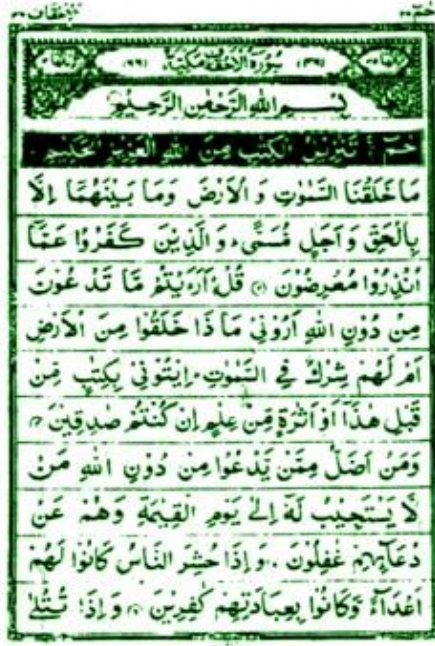 حٰمٓ ٢٦
سُوْرَةُ الْاَحْقَافِ مَكِّيَّةٌ (٤٦) (٦٦)
بِسْمِ اللهِ الرَّحْمٰنِ الرَّحِيْمِ
حٰمٓ تَنْزِيْلُ الْكِتٰبِ مِنَ اللهِ الْعَزِيْزِ الْحَكِيْمِ
مَا خَلَقْنَا السَّمٰوٰتِ وَ الْاَرْضَ وَمَا بَيْنَهُمَا اِلَّا
بِالْحَقِّ وَ اَجَلٍ مُّسَمًّى وَ الَّذِيْنَ كَفَرُوْا عَمَّآ
اُنْذِرُوْا مُعْرِضُوْنَ قُلْ اَرَءَيْتُمْ مَّا تَدْعُوْنَ
مِنْ دُوْنِ اللهِ اَرُوْنِيْ مَا ذَا خَلَقُوْا مِنَ الْاَرْضِ
اَمْ لَهُمْ شِرْكٌ فِي السَّمٰوٰتِ اِيْتُوْنِيْ بِكِتٰبٍ مِّنْ
قَبْلِ هٰذَآ اَوْ اَثٰرَةٍ مِّنْ عِلْمٍ اِنْ كُنْتُمْ صٰدِقِيْنَ
وَمَنْ اَضَلُّ مِمَّنْ يَّدْعُوْا مِنْ دُوْنِ اللهِ مَنْ
لَّا يَسْتَجِيْبُ لَهٗ اِلٰى يَوْمِ الْقِيٰمَةِ وَهُمْ عَنْ
دُعَآئِهِمْ غٰفِلُوْنَ وَاِذَا حُشِرَ النَّاسُ كَانُوْا لَهُمْ
اَعْدَآءً وَّكَانُوْا بِعِبَادَتِهِمْ كٰفِرِيْنَ وَاِذَا تُتْلٰى